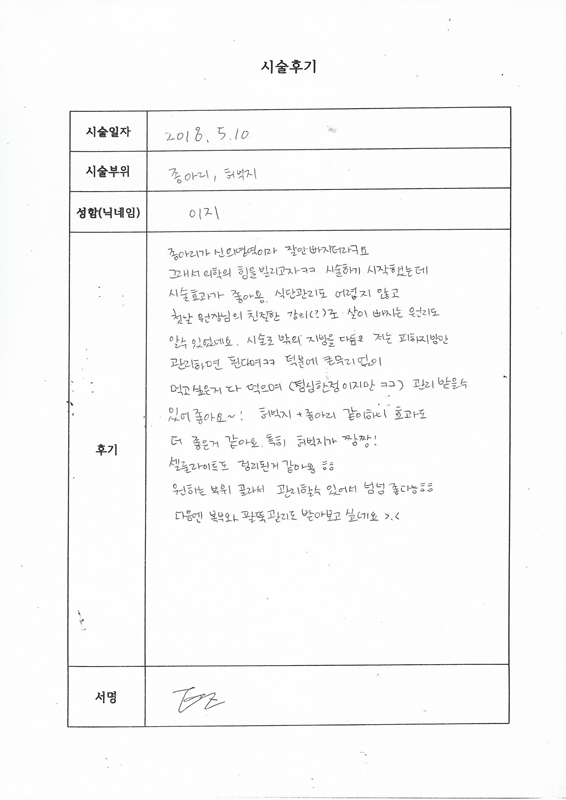 시술후기
시술일자 2018. 5. 10
시술부위 종아리, 허벅지
성함(닉네임) 이지
후기
종아리가 신의영역이라 잘안빠지더라구요
그래서 의학의 힘을 빌리고자ㅋㅋ 시술하기 시작했는데
시술효과가 좋아용. 식단관리도 어렵지 않고
첫날 원장님의 친절한 강의(?)로 살이 빠지는 원리도
알수있었네요. 시술로 밖의 지방을 다듬고 저는 피하지방만
관리하면 된다며ㅋㅋ 덕분에 큰무리없이
먹고싶은거 다 먹으며 (점심한정이지만 ㅋㅋ) 관리 받을수
있어 좋아요~! 허벅지 + 종아리 같이하니 효과도
더 좋은거 같아요. 특히 허벅지가 짱짱!
셀룰라이트도 정리된거 같아용 ㅎㅎ
원하는 부위 골라서 관리할수 있어서 넘넘 좋다능ㅎㅎ
다음엔 복부와 팔뚝관리도 받아보고 싶네요 >.<
서명